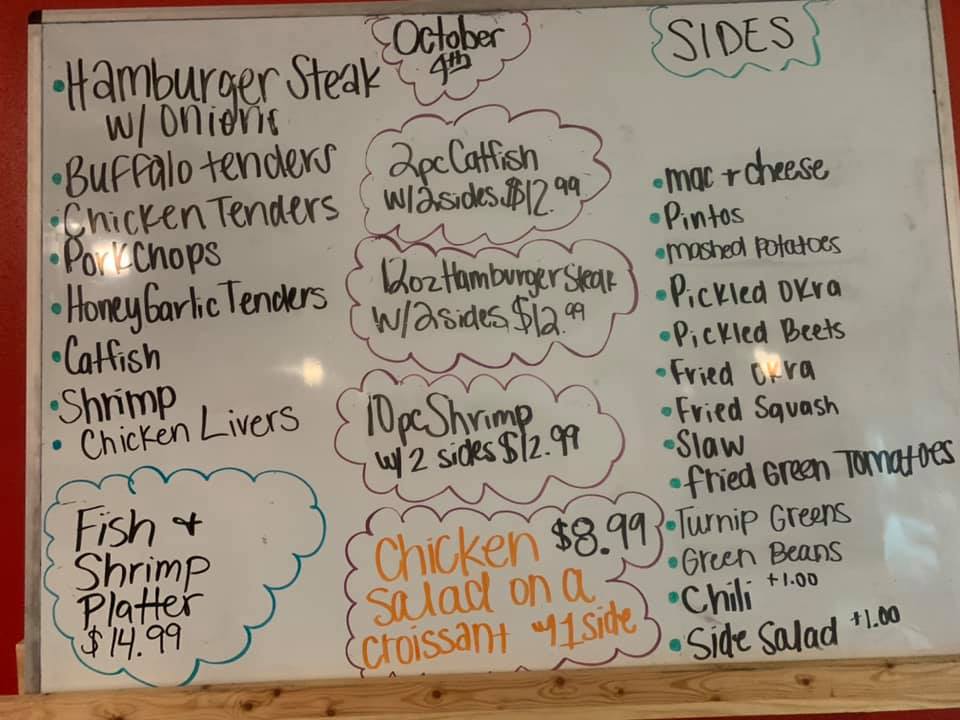 •Hamburger Steak
w/ Onions
•Buffalo tenders
•Chicken Tenders
•Pork Chops
•Honey Garlic Tenders
•Catfish
•Shrimp
• Chicken Livers
Fish +
Shrimp
Platter
$14.99
October
4th
2pc Catfish
w/2sides $12.99
12oz Hamburger Steak
w/2sides $12.99
10pc Shrimp
w/ 2 sides $12.99
Chicken $8.99
Salad on a
croissant w/ 1 side
SIDES
•mac + cheese
•Pintos
•mashed Potatoes
•Pickled Okra
•Pickled Beets
•Fried Okra
•Fried Squash
•Slaw
•fried Green Tomatoes
•Turnip Greens
•Green Beans
•Chili +1.00
•Side Salad +1.00